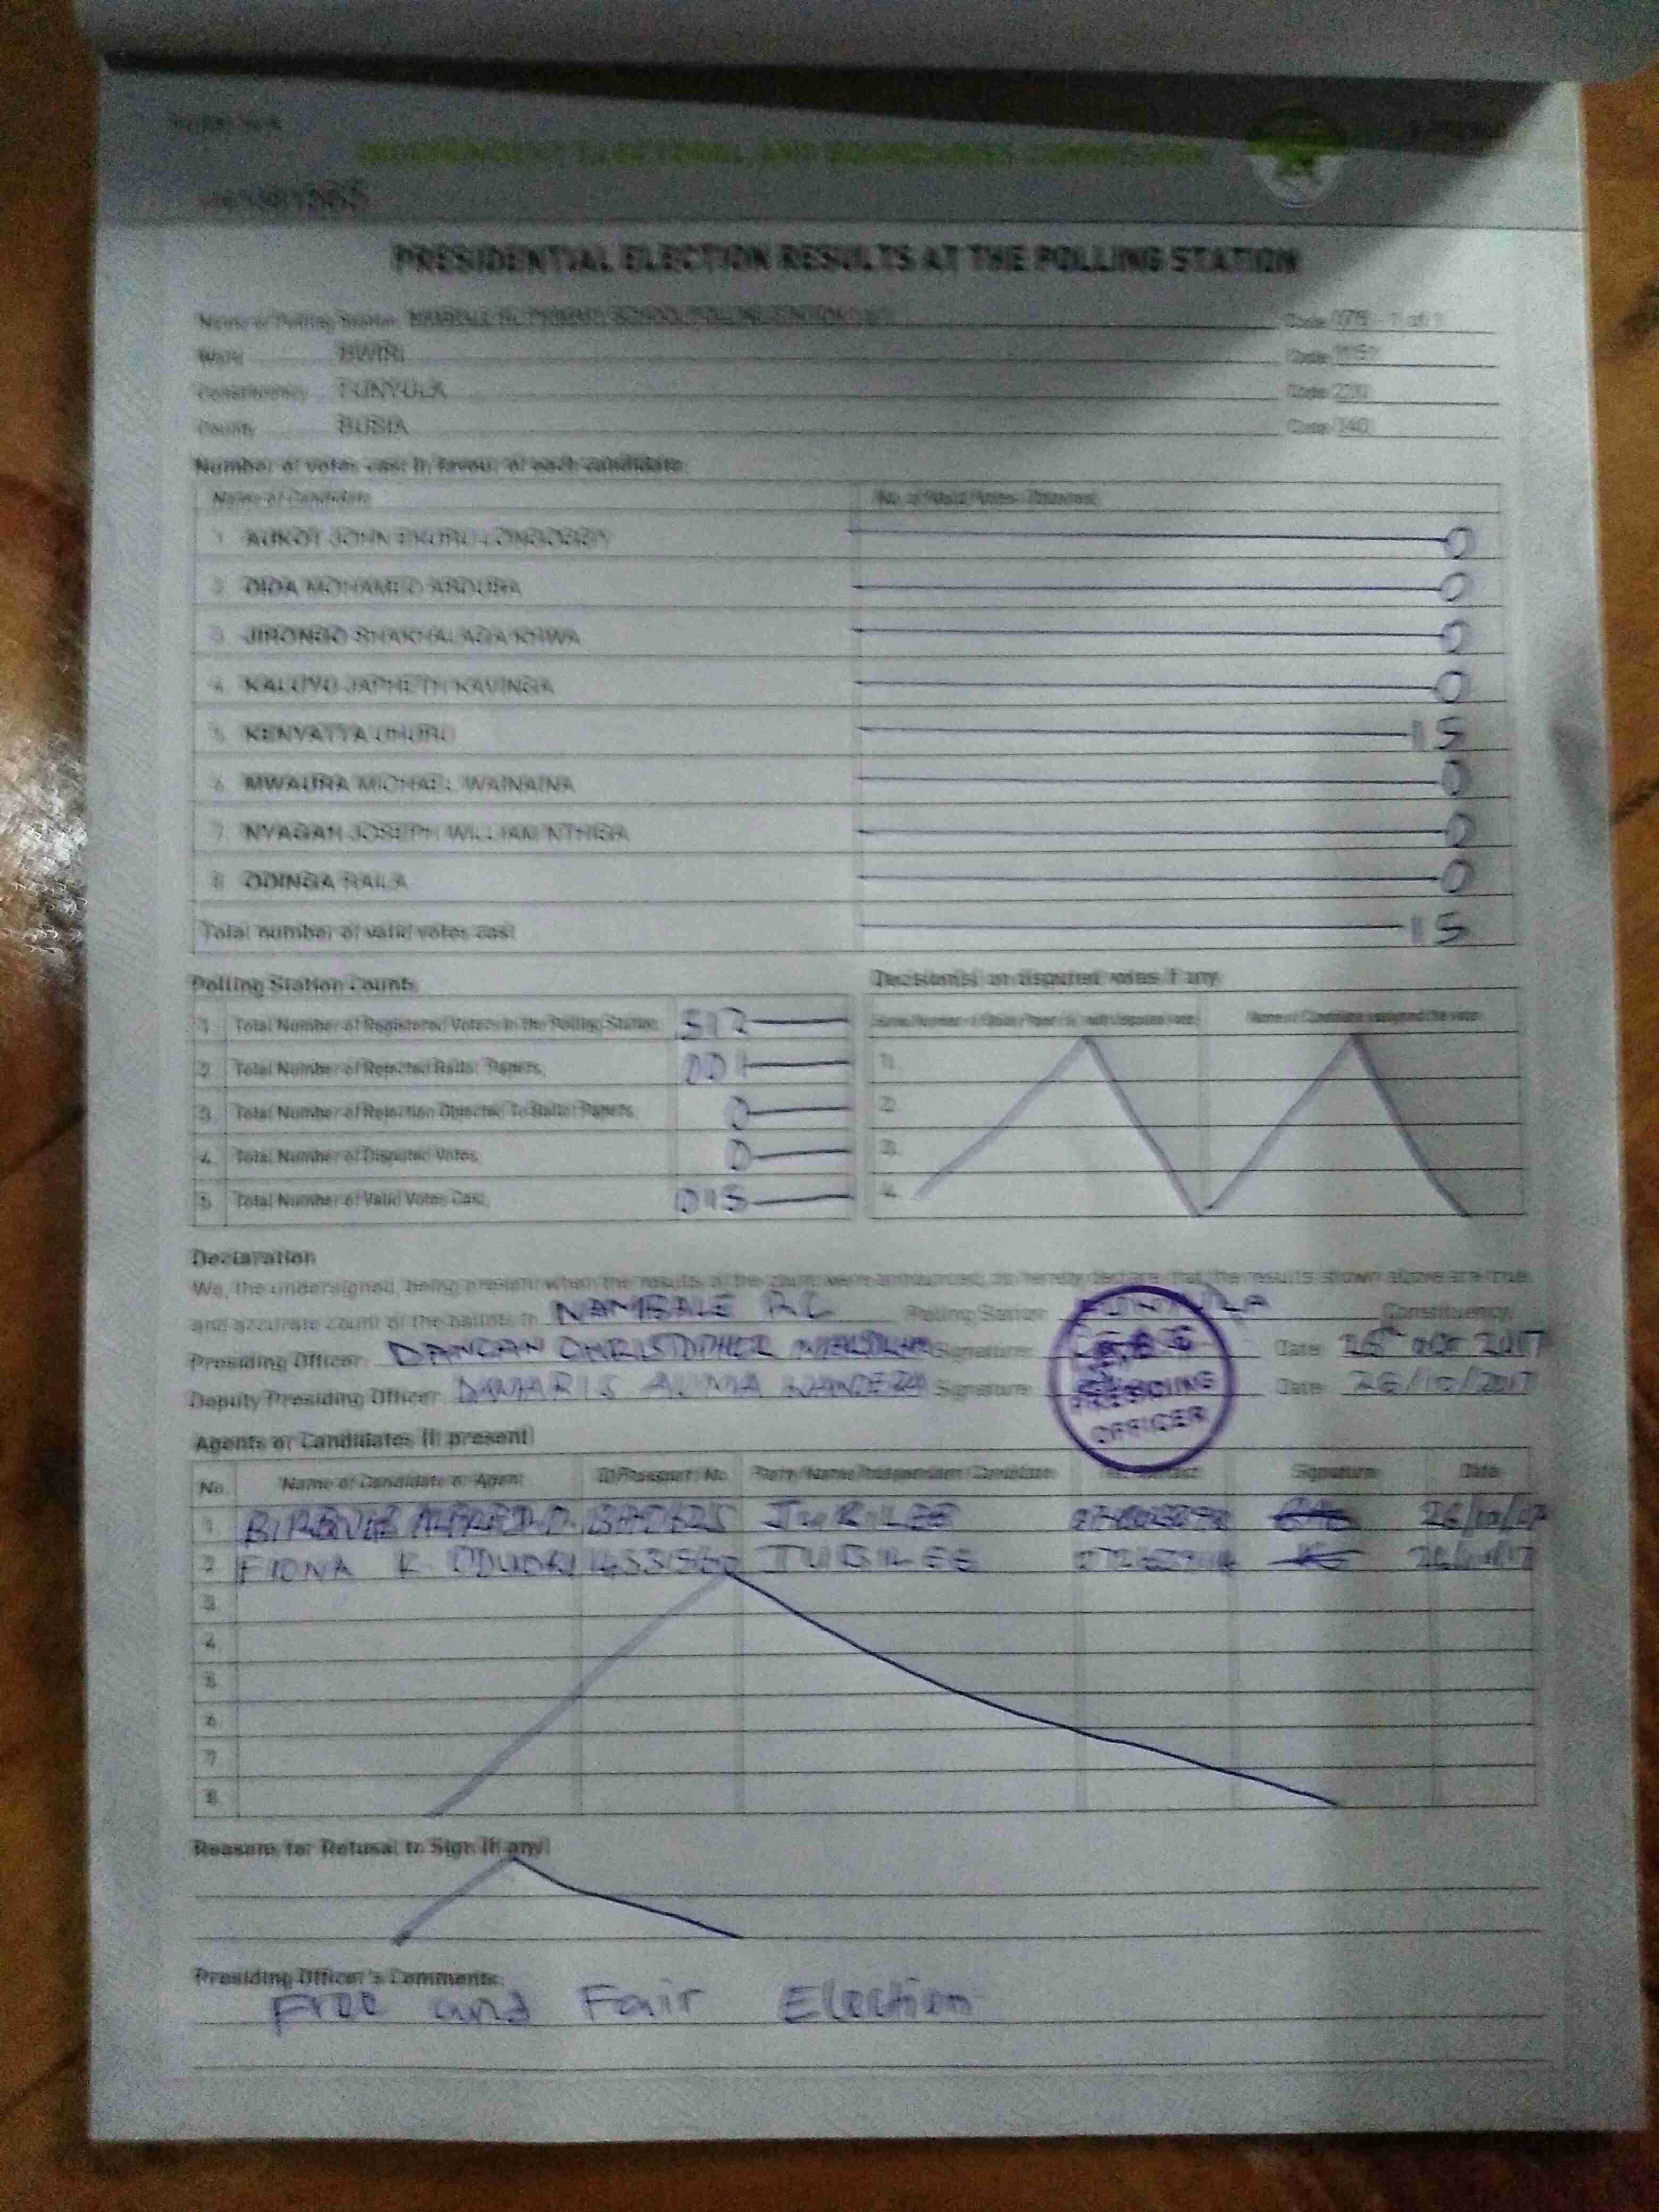 INDEPENDENT ELECTORAL AND BOUNDARIES COMMISSION
PRESIDENTIAL ELECTION RESULTS AT THE POLLING STATION
Name of Polling Station
Ward BWIRI Code
Constituency FUNYULA Code
County BUSIA Code
Number of votes cast in favour of each candidate
Name of Candidate No. of Valid Votes Obtained
1. AUKOT JOHN EKURU LONGOGGY 0
2. DIDA MOHAMED ABDUBA 0
3. JIRONGO SHAKHALAGA KHWA 0
4. KALUYU JAPHETH KAVINGA 0
5. KENYATTA UHURU 15
6. MWAURA MICHAEL WAINAINA 0
7. NYAGAH JOSEPH WILLIAM NTHIGA 0
8. ODINGA RAILA 0
Total number of valid votes cast 15
Polling Station Counts
Decision(s) on disputed votes if any
1. Total Number of Registered Voters in the Polling Station 512
2. Total Number of Rejected Ballot Papers 001
3. Total Number of Rejection Objected To Ballot Papers 0
4. Total Number of Disputed Votes 0
5. Total Number of Valid Votes Cast 015
1)
2)
3)
4)
Declaration
We, the undersigned, being present when the results of the count were announced, do hereby declare that the results shown above are true
and accurate count of the ballots in NAMBALE R.C Polling Station FUNYULA Constituency.
Presiding Officer: DANCAN CHRISTOPHER Signature: Date: 2017
Deputy Presiding Officer: DAMARIS AUMA Signature: Date: 26/10/2017
PRESIDING
OFFICER
Agents or Candidates (if present)
No. Name of Candidate or Agent ID/Passport No. Party Name/Independent Candidate Tel. Contact Signature Date
1 JUBILEE
2 FIONA K. ODUORI JUBILEE
3
4
5
6
7
8
Reasons for Refusal to Sign (if any)
Presiding Officer's Comments:
Free and Fair Election